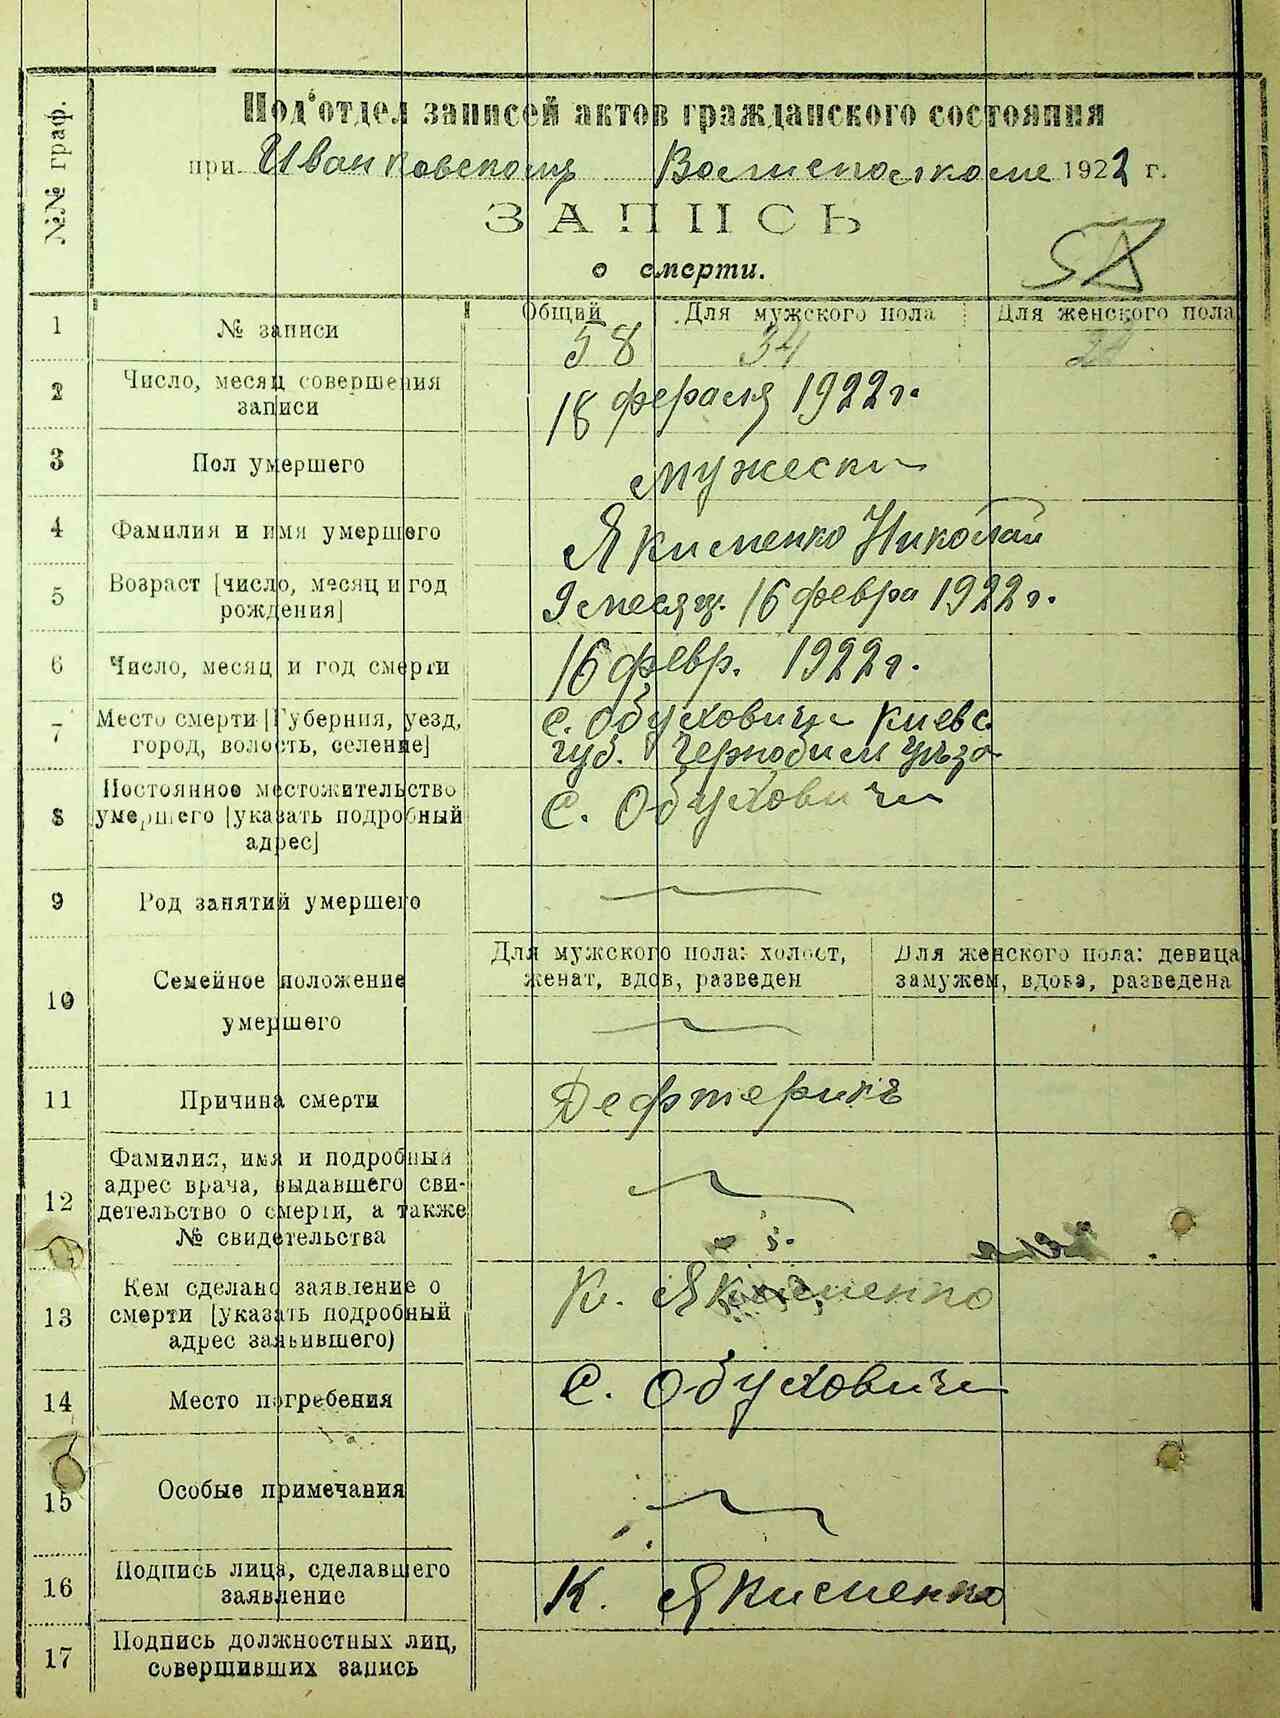 №№ граф.
Под'отдел записей актов гражданского состояния
при Иванковском Волисполкоме 1922 г.
ЗАПИСЬ
о смерти.
1 № записи Общий Для мужского пола Для женского пола
58 34 24
2 Число, месяц совершения
записи
18 фераля 1922 г.
3 Пол умершего мужески
4 Фамилия и имя умершего Якименко Николай
5 Возраст [число, месяц и год
рождения]
9 месяц. 16 февра 1922 г.
6 Число, месяц и год смерти 16 февр. 1922 г.
7 Место смерти [Губерния, уезд,
город, волость, селение]
с. Обуховичи Киевс
губ. Чернобыл уезда
8 Постоянное местожительство
умершего [указать подробный
адрес]
С. Обуховичи
9 Род занятий умершего
10 Семейное положение
умершего
Для мужского пола: холост,
женат, вдов, разведен
Для женского пола: девица
замужем, вдова, разведена
11 Причина смерти Дефтерикъ
12 Фамилия, имя и подробный
адрес врача, выдавшего сви-
детельство о смерти, а также
№ свидетельства
13 Кем сделано заявление о
смерти [указать подробный
адрес заявившего)
К. Якименко
14 Место погребения С. Обуховичи
15 Особые примечания
16 Подпись лица, сделавшего
заявление
К. Якименко
17 Подпись должностных лиц,
совершивших запись